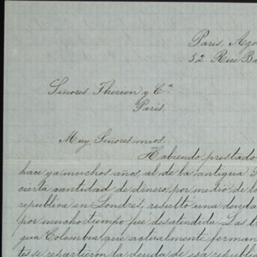 Paris, Ago
52 Rue Ba
Señores Thirion y Cª
Paris.
Muy Señores mios.
Habiendo prestado
hace ya muchos años al de la antigua
cierta cantidad de dinero, por medio de
republica en Londres, resultó una deuda
por mucho tiempo fue desatendida. Las
gua Colombia que actualmente forman
se repartieron la deuda de esa repub